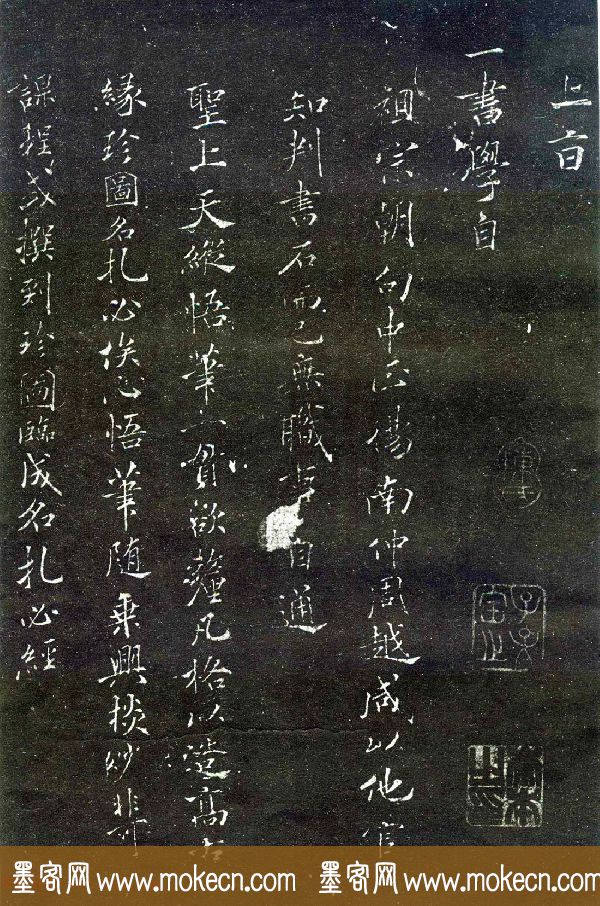 上旨
一書學自
祖宗朝句中正楊南仲周越咸以他官
知判書石而已無職事自通
聖上天縱悟筆一貫欲釐凡格以造高古
緣珍圖名札必俟心悟筆隨乘興掞妙非
課程或撰到珍圖臨成名札必經
子孫
寶之
墨客网 www.mokecn.com 墨客网 www.mokecn.com